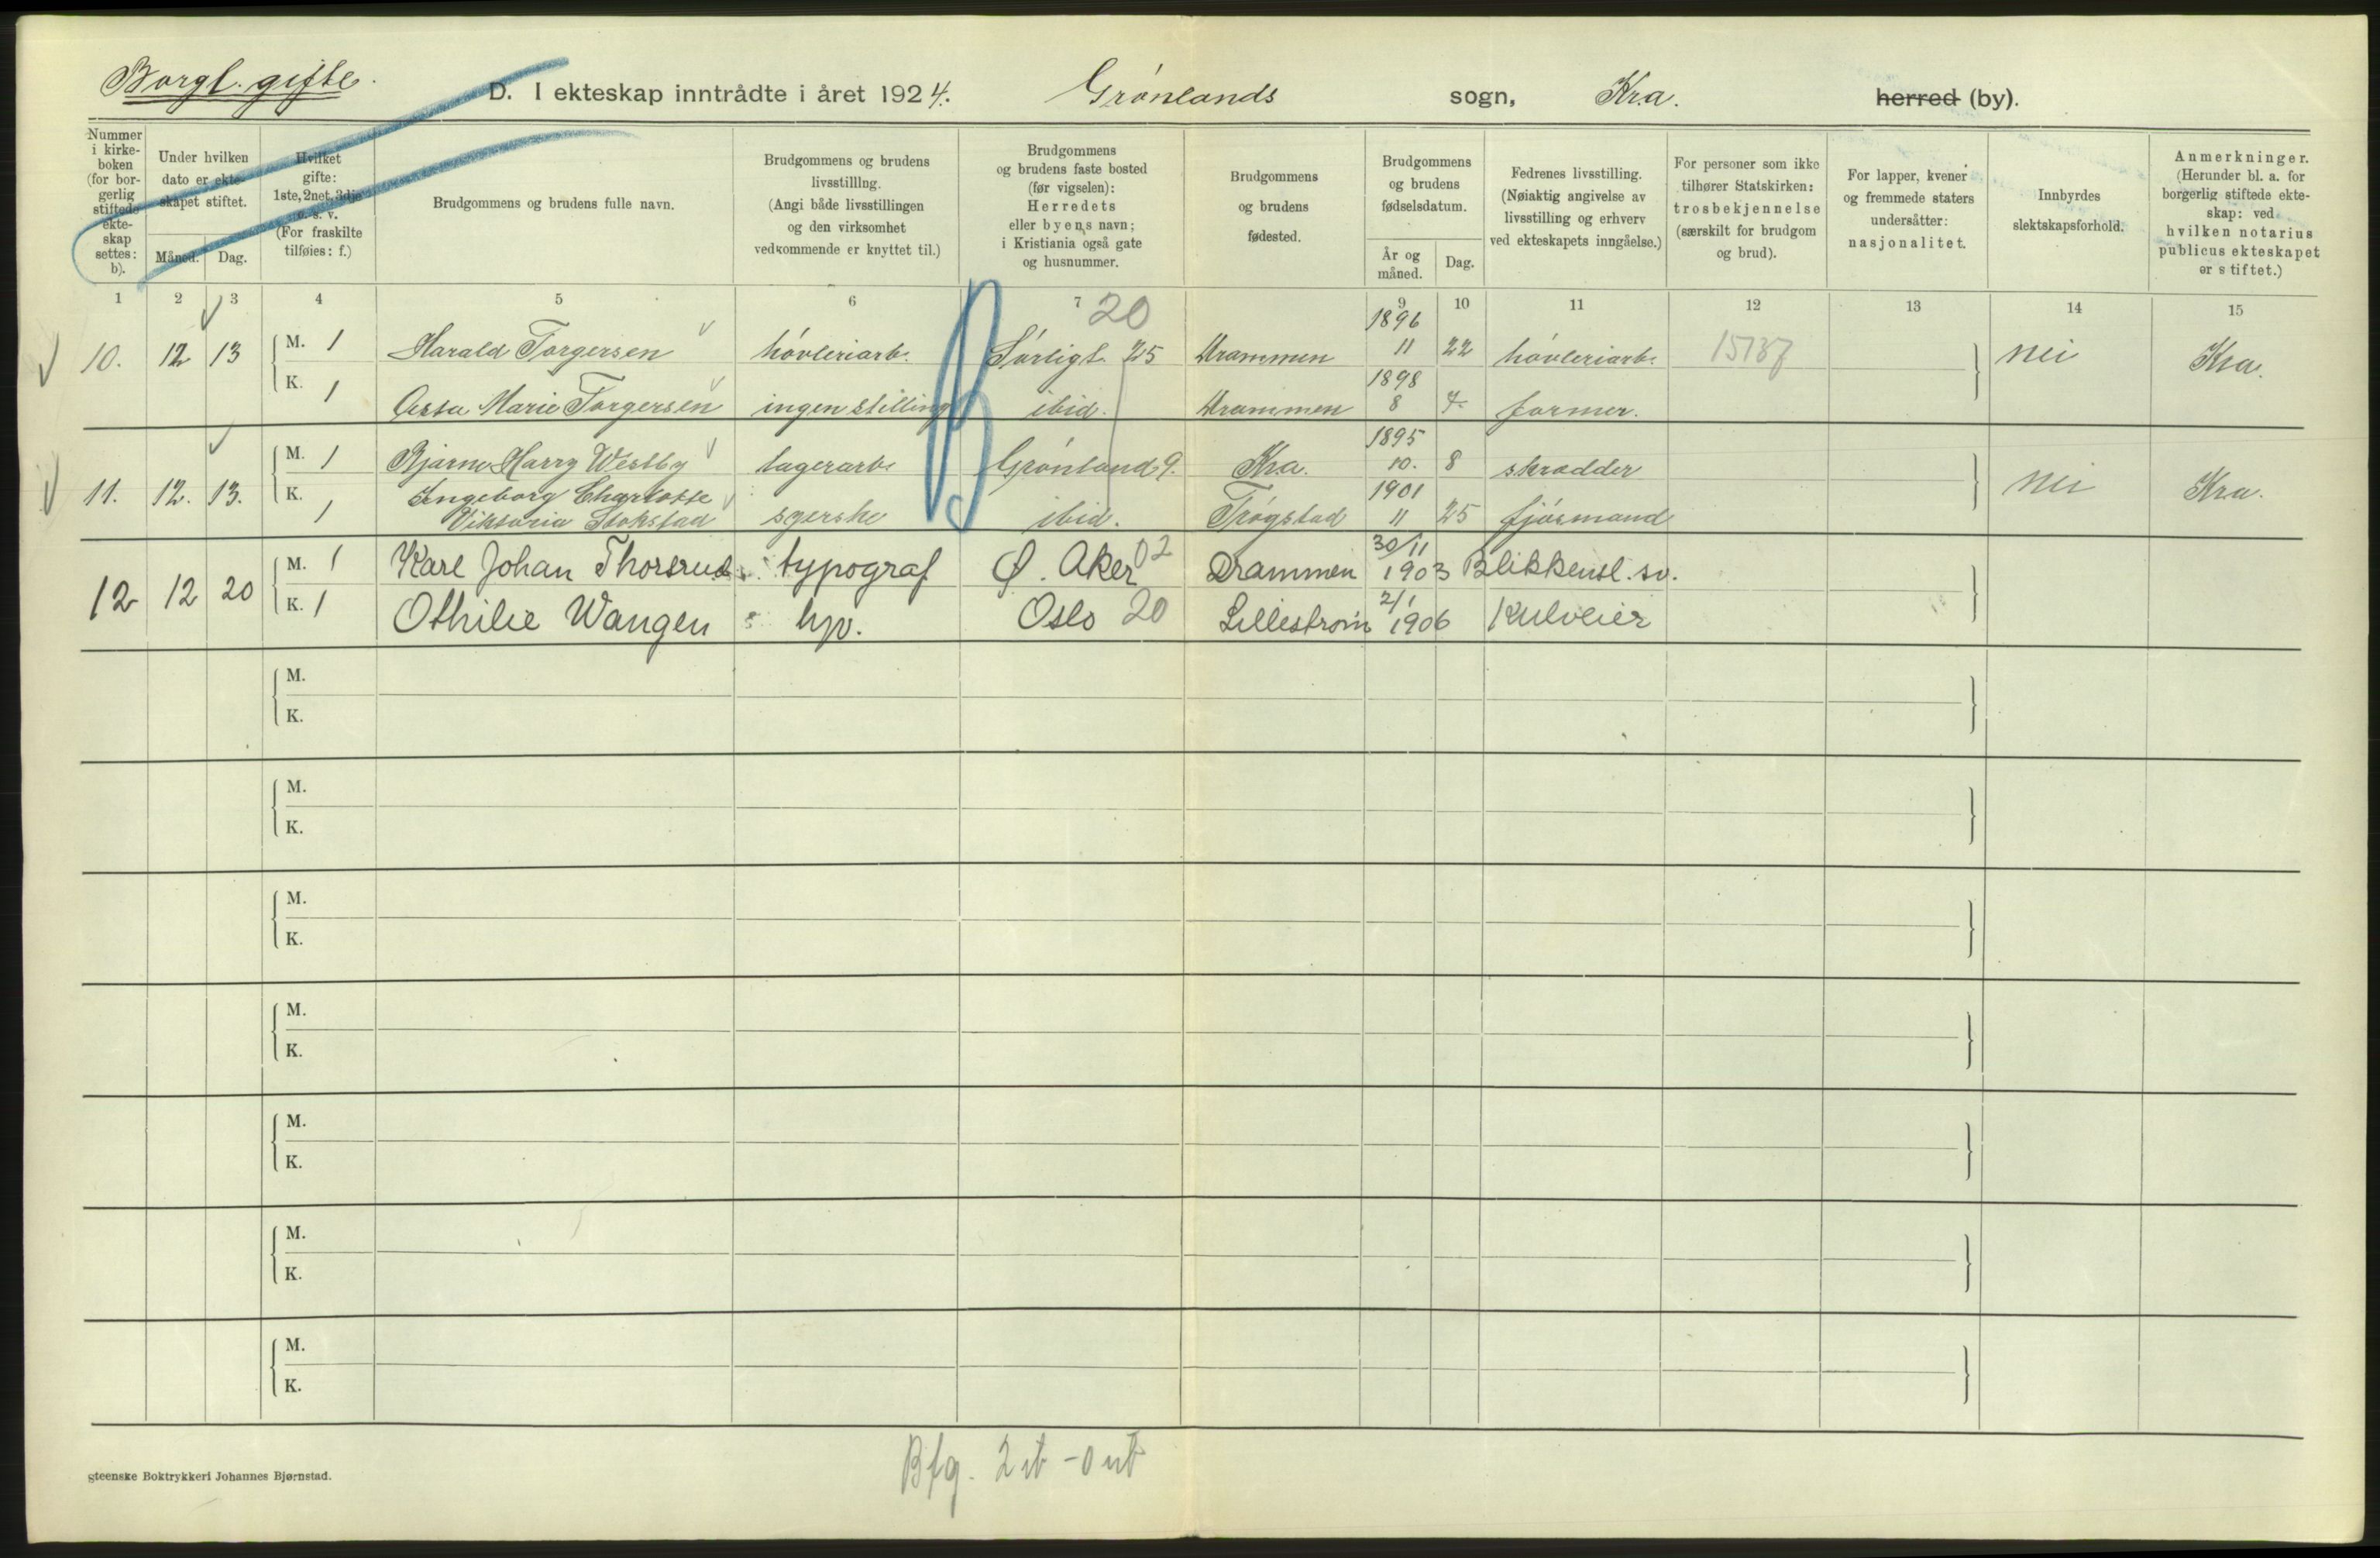 Borgl. gifte.
D. I ekteskap inntrådte i året 1924. Grønlands sogn, Kra. herred (by).
Nummer i kirke-boken (for bor-gerlig stiftede ekte-skap settes: b).
Under hvilken dato er ekte-skapet stiftet.
Måned. Dag.
Hvilket gifte: 1ste, 2net, 3dje o. s. v. (For fraskilte tilføies: f.)
Brudgommens og brudens fulle navn.
Brudgommens og brudens livsstilling. (Angi både livsstillingen og den virksomhet vedkommende er knyttet til.)
Brudgommens og brudens faste bosted (før vigselen): Herredets eller byens navn; i Kristiania også gate og husnummer.
Brudgommens og brudens fødested.
Brudgommens og brudens fødselsdatum.
År og måned. Dag.
Fedrenes livsstilling. (Nøiaktig angivelse av livsstilling og erhverv ved ekteskapets inngåelse.)
For personer som ikke tilhører Statskirken: trosbekjennelse (særskilt for brudgom og brud).
For lapper, kvener og fremmede staters undersåtter: nasjonalitet.
Innbyrdes slektskapsforhold.
Anmerkninger. (Herunder bl. a. for borgerlig stiftede ekte-skap: ved hvilken notarius publicus ekteskapet er stiftet.)
1 2 3 4 5 6 7 9 10 11 12 13 14 15
20
10. 12 13 M. 1 Harald Torgersen høvleriarb. Sørligt. 25 Drammen 1896 11 22 høvleriarb. nei Kra.
K. 1 Aasta Marie Torgersen ingen stilling ibid. Drammen 1898 8 7 former.
11. 12. 13. M. 1 Bjarne Harry Westby lagerarb. Grønland 9. Kra. 1895 10. 8 skrædder nei Kra.
K. 1 Ingeborg Charlotte
Viktoria Stokstad syerske ibid. Trøgstad 1901 11 25 fjøsmand
12 12 20 M. 1 Karl Johan Thorsrud typograf Ø. Aker 02 Drammen 30/11 1903 Blikkensl. sv.
K. 1 Othilie Wangen hpv. Oslo 20 Lillestrøm 2/1 1906 Kulveier
M.
K.
M.
K.
M.
K.
M.
K.
M.
K.
M.
K.
M.
K.
Bfg. 2 ib - 0 ub
gteenske Boktrykkeri Johannes Bjørnstad.